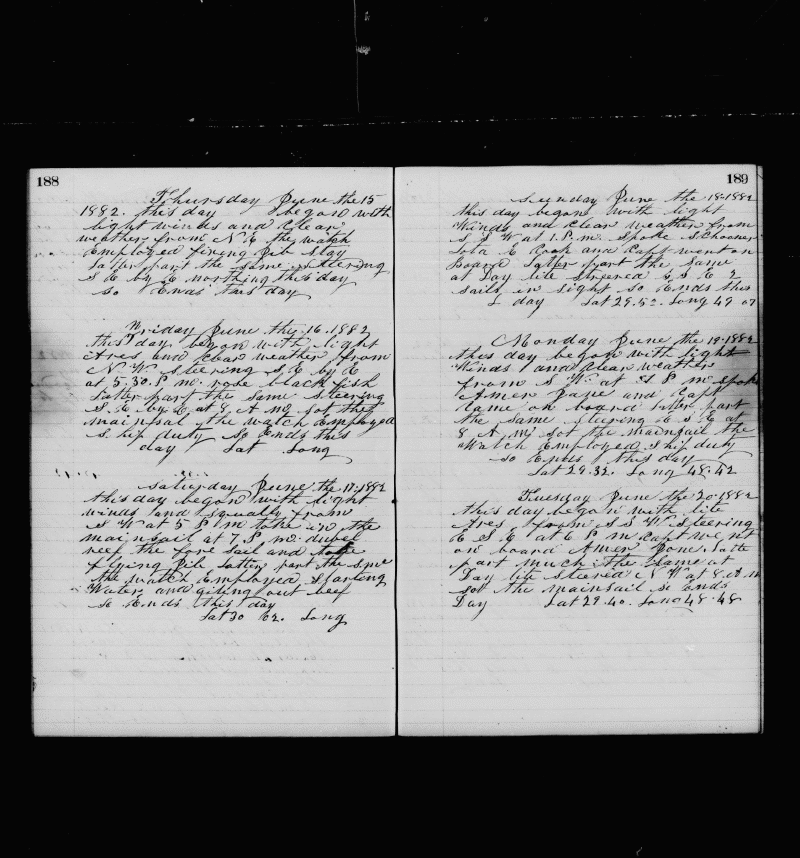 188
Thursday June the 15
1882. this day begon with
light winds and Clear
weather from N E the watch
Employed fixing Jib Stay
latter part the same steering
S E by E northing this day
so Ends this day
Friday June the 16. 1882
this day begon with light
Ares and clear weather from
N. W. steering S. E by E
at 5.30. P m. rose black fish
latter part the same steering
S. E by E at 8 A M sot the
mainsal the watch Employed
S. hip duty So Ends this
day Lat Long
Saturday June the 17-1882
this day begon with light
winds and squally from
S W at 5 P m toke in the
mainsail at 7. P m. dubel
reef the fore sail and toke
flying Jib latter part the same
the watch Employed Starting
Water and giting out beef
so Ends this day
Lat 30 02. Long
189
Sunday June the 18-1882
this day begon with light
Winds and clear weather from
S S W at 1. P. m. Spoke Schooner
E Cook and Capt went on
Board latter part the same
at Day lite steered E S E 2
sails in sight so Ends this
day Lat 29.52. Long 49 07
Monday June the 19-1882
this day begon with light
Winds and clear weather
from S W. at P m spoke
and Capt
Came on board latter part
the same steering E S E at
8 A. m. sot the mainsail the
Watch Employed Ship duty
so Ends this day
Lat 29.32. Long 48.42
Tuesday June the 20-1882
this day begon with lite
Ares from S S W. steering
E S E at 6 P m Capt went
on board latte
part much the same at
Day lite steered N W at 8 A m
sot the mainsail so ends
Day Lat 29.40. Long 48.48